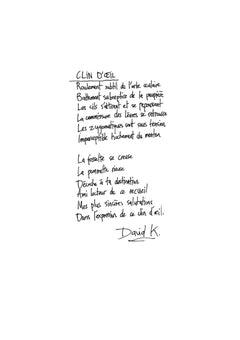 CLIN D'ŒIL
Roulement subtil de l'arbe oculaire
Battement subreptice de la paupière
Les cils s'étirent et se répondent
La commissure des lèvres se retrousse
Les zygomatiques sont sous tension
Imperceptible hochement du menton
La fossette se creuse
La pommette rieuse
Décoche à ta destination
Ami lecteur de ce recueil
Mes plus sincères salutations
Dans l'expression de ce clin d'œil.
David K.